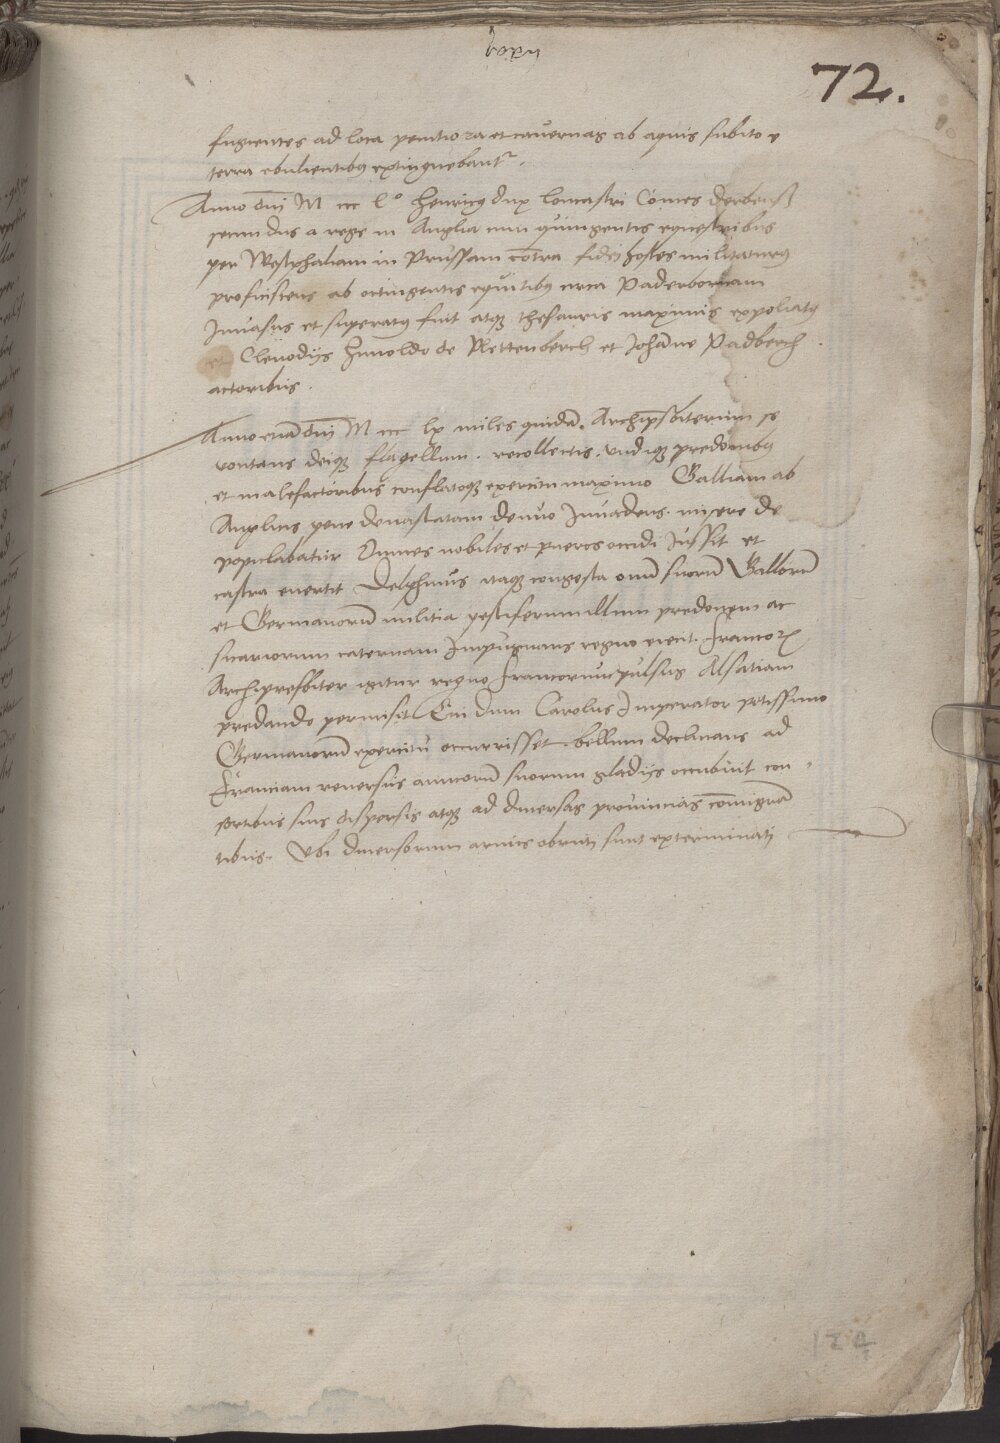 lxxij
72.
fugientes ad loca penitiora et cauernas ab aquis subito e
terra ebulientibus extinguebantur.
Anno dni M ccc l° Henricus dux lomcastri Comes derbenß
secundus a rege in Anglia cum quingentis equestribus
per Westphaliam in Prussam contra fidei hostes militaturus
proficiscens ab octingentis equitibus circa Padebornam
Inuasus et superatus fuit atque thesauris maximis expoliatus
et Clenodijs Hunoldo de Plettenberch et Johanne Padberch
actoribus.
Anno eciam dni M ccc lx miles quidam, Archipresbiterum se
vocitans deique flagellum. recollectis. vndique predonibus
et malefactoribus conflatoque exercitu maximo Galliam ab
Anglicis pene deuastatam denuo Inuadens. misere de
populabatur Omnes nobiles et pueros occidi Jussit et
castra euertit Delphinus itaque congesta omnium suorum Gallorum
et Germanorum militia pestiferum illum predonem ac
sicariorum cateruam Impugnans regno eiecit. francorum
Archipresbiter igitur regno francorum pulsus Alsatiam
predando permisit Cui dum Carolus Imperator potissimo
Germanorum exercitu occurrisset. bellum declinans ad
Franciam reuersus amicorum suorum gladijs occubuit con
sortibus suis dispersis atque ad diuersas prouincias comigran
tibus. Vbi diuersorum armis obruti sunt exterminati